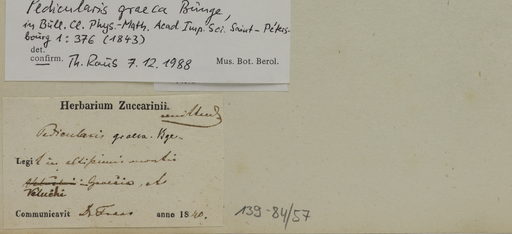 Pedicularis graeca Bunge,
in Bull. Cl. Phys.-Math. Acad Imp. Sci. Saint-Péters-
bourg 1: 376 (1843)
det.
confirm. Th. Raus 7. 12. 1988 Mus. Bot. Berol.
Herbarium Zuccarinii.
Pedicularis graeca. Bge.
Legit in altissimis montis
Graecia,
Veluchi
Communicavit Dr. Fraas anno 1840.
139-84/57